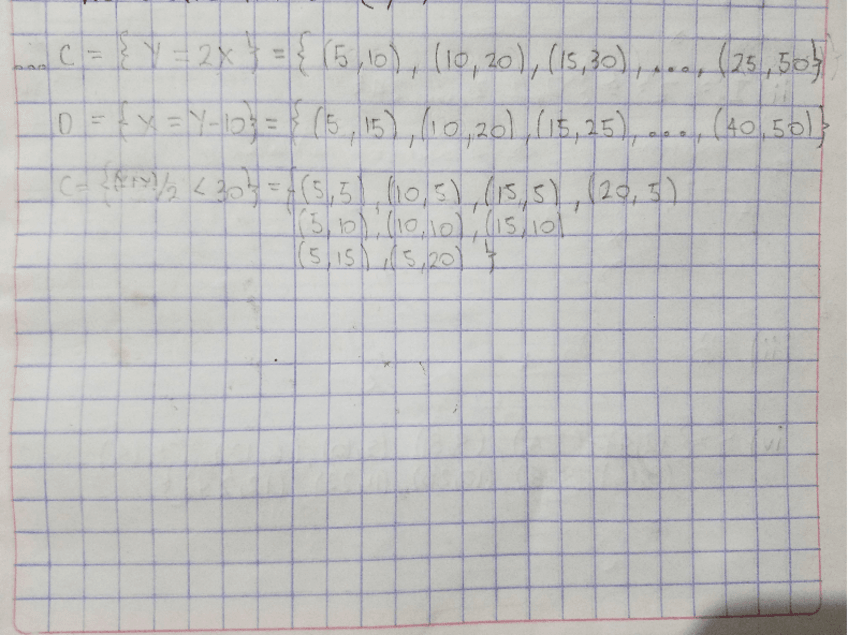 ... C = { Y = 2X } = { (5,10), (10,20), (15,30), ..., (25,50}
D = { X = Y-10} = { (5,15), (10,20), (15,25), ..., (40,50)}
C = {(X+Y)/2 < 30} = {(5,5), (10,5), (15,5), (20,5)
(5,10), (10,10), (15,10)
(5,15), (5,20) }